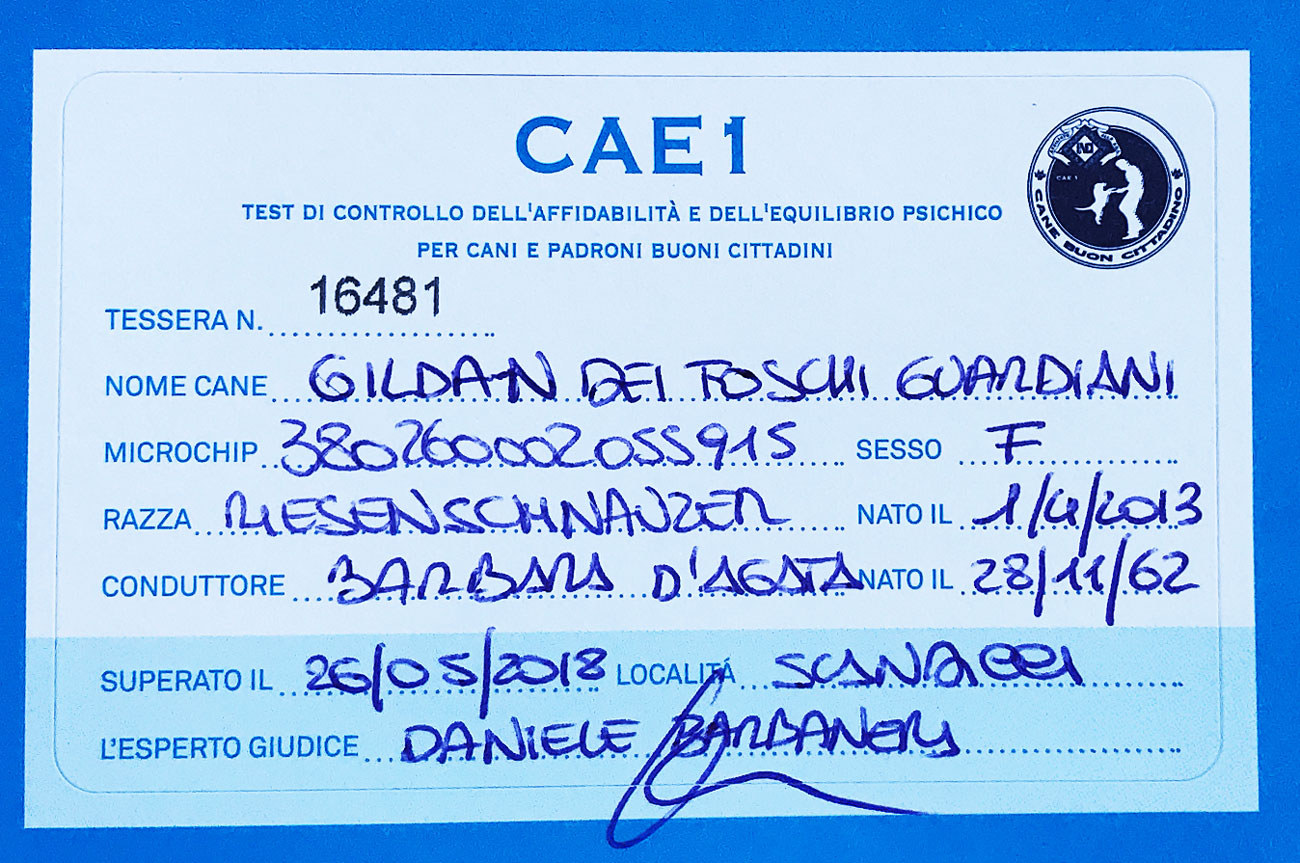 CAE1
TEST DI CONTROLLO DELL'AFFIDABILITÀ E DELL'EQUILIBRIO PSICHICO
PER CANI E PADRONI BUONI CITTADINI
CAE 1
CANE BUON CITTADINO
TESSERA N. 16481
NOME CANE GILDAN DEI TOSCHI GUARDIANI
MICROCHIP 380260002055915 SESSO F
RAZZA RIESENSCHNAUZER NATO IL 1/4/2013
CONDUTTORE BARBARA D'AGATA NATO IL 28/11/62
SUPERATO IL 26/05/2018 LOCALITÁ SCANDICCI
L'ESPERTO GIUDICE DANIELE